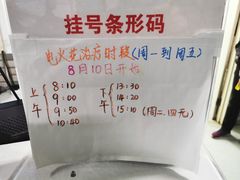 挂号条形码
电火花治疗时段(周一到周五)
8月10日开始
上午 8:10 下午 13:30
9:00 14:20
9:50 15:10 (周二.四无)
10:40